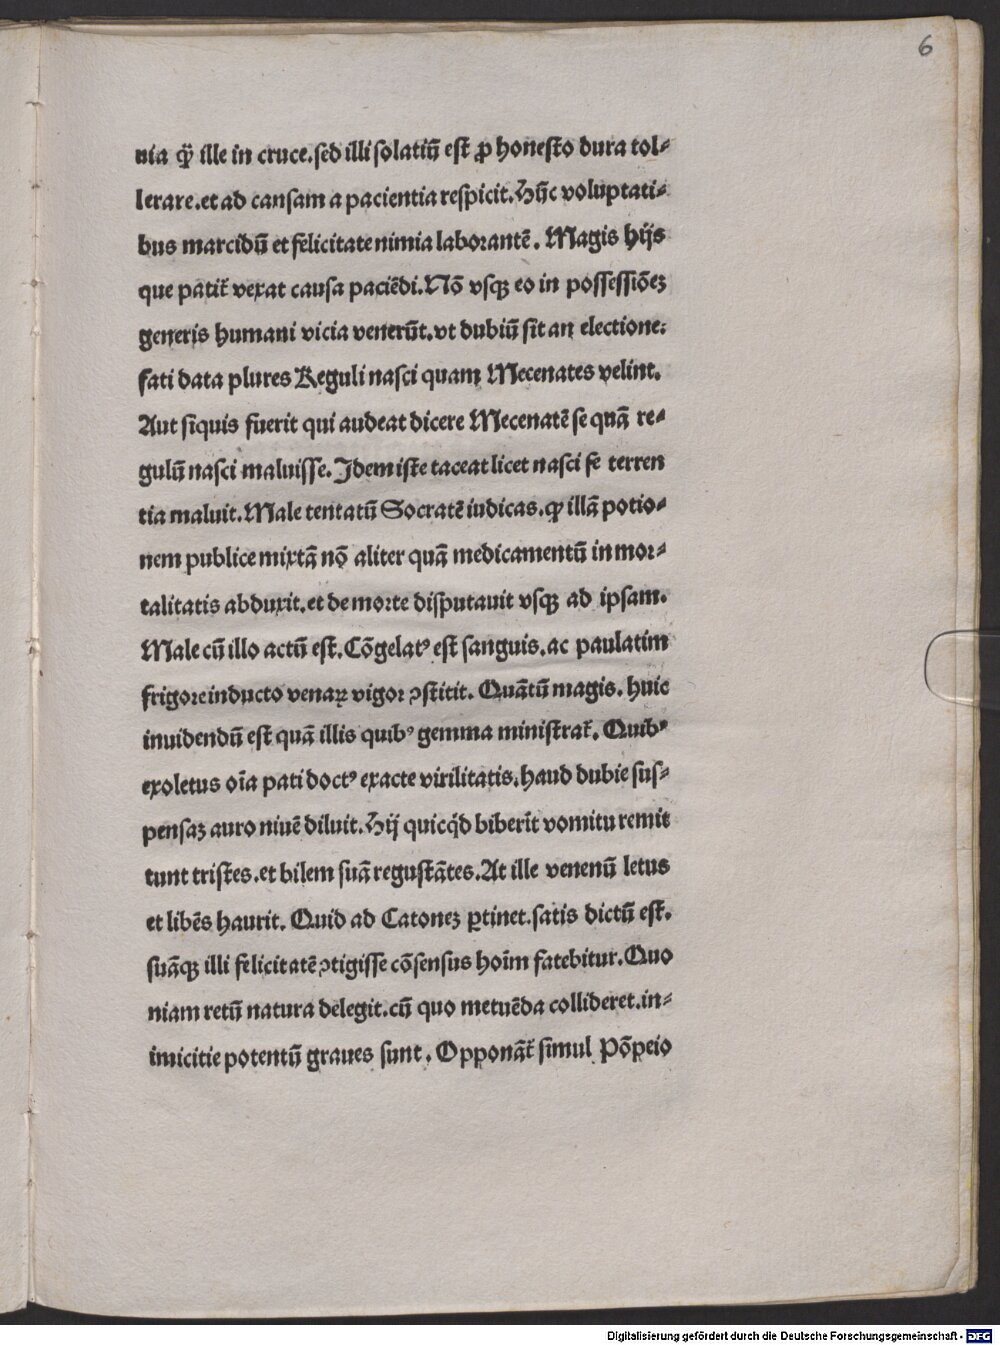 6
nia qͥ ille in cruce.sed illi solatiū est ꝓ honesto dura tol⸗
lerare.et ad cansam a pacientia respicit.Hūc voluptati⸗
bus marcidū et felicitate nimia laborantē. Magis hijs
que patit᷑ vexat causa paciēdi.Nō vsqꝫ eo in possessiōeꝫ
generis humani vicia venerūt.vt dubiū sit an electione:
fati data plures Reguli nasci quam Mecenates velint.
Aut siquis fuerit qui audeat dicere Mecenatē se quā re⸗
gulū nasci maluisse.Idem iste taceat licet nasci se terren
tia maluit.Male tentatū Socratē iudicas.ꝙ illā potio⸗
nem publice mixtā nō aliter quā medicamentū in mor⸗
talitatis abduxit.et de morte disputauit vsqꝫ ad ipsam.
Male cū illo actū est.Cōgelatꝰ est sanguis.ac paulatim
frigore inducto venaꝝ vigor ꝯstitit. Quātū magis. huic
inuidendū est quā illis quibꝰ gemma ministrat᷑. Quibꝰ
exoletus oīa pati doctꝰ exacte virilitatis.haud dubie sus⸗
pensaꝫ auro niuē diluit.Hij quicq̇d biberīt vomitu remit
tunt tristes.et bilem suā regustātes.At ille venenū letus
et libēs haurit. Quid ad Catoneꝫ ꝑtinet.satis dictū est.
suāqꝫ illi felicitatē ꝯtigisse cōsensus hoīm fatebitur.Quo
niam retū natura delegit.cū quo metuēda collideret.in⸗
imicitie potentū graues sunt. Opponāt᷑ simul Pōpeio
Digitalisierung gefördert durch die Deutsche Forschungsgemeinschaft - DFG